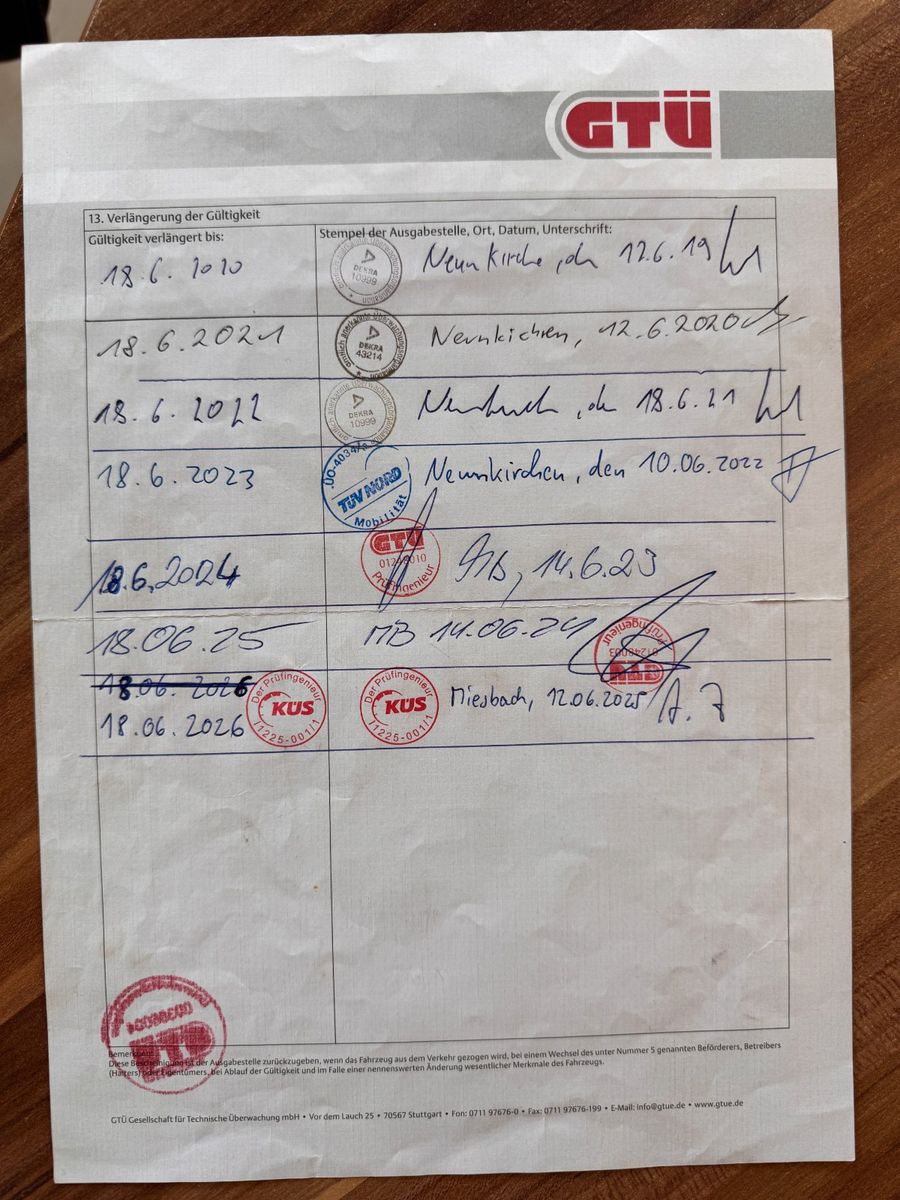 GTÜ
13. Verlängerung der Gültigkeit
Gültigkeit verlängert bis:
Stempel der Ausgabestelle, Ort, Datum, Unterschrift:
18.6.2020
amtlich anerkannte Überwachungsorganisation DEKRA 10999
Neunkirche, den 12.6.19
18.6.2021
amtlich anerkannte Überwachungsorganisation DEKRA 43214
Neunkichren, 12.6.2020
18.6.2022
amtlich anerkannte Überwachungsorganisation DEKRA 10999
18.6.21
18.6.2023
TÜV NORD Mobilität
Neunkirchen, den 10.06.2022
18.6.2024
GTÜ Prüfingenieur
14.6.23
18.06.25
MB 14.06.24
GTÜ 01248003 Prüfingenieur
18.06.2026
18.06.2026
Der Prüfingenieur KÜS 11225-001/1
Der Prüfingenieur KÜS 11225-001/1
Miesbach, 12.06.2025
GTÜ
Bemerkung:
Diese Bescheinigung ist der Ausgabestelle zurückzugeben, wenn das Fahrzeug aus dem Verkehr gezogen wird, bei einem Wechsel des unter Nummer 5 genannten Beförderers, Betreibers
(Halters) oder Eigentümers, bei Ablauf der Gültigkeit und im Falle einer nennenswerten Änderung wesentlicher Merkmale des Fahrzeugs.
GTÜ Gesellschaft für Technische Überwachung mbH • Vor dem Lauch 25 • 70567 Stuttgart • Fon: 0711 97676-0 • Fax: 0711 97676-199 • E-Mail: info@gtue.de • www.gtue.de